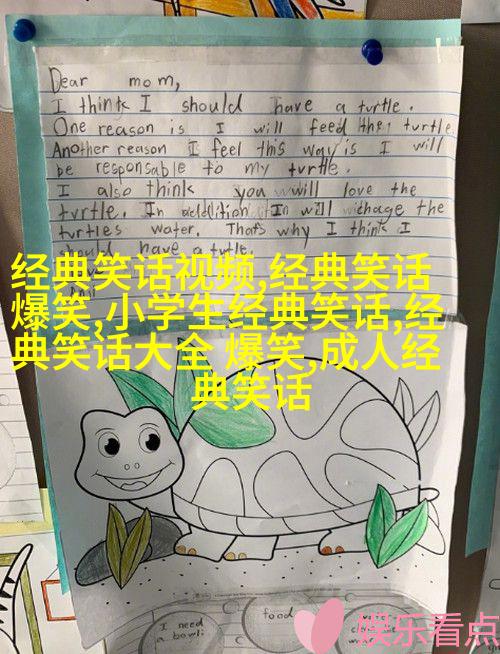 Dear mom,
I think I should have a turtle.
One reason is I will feed the turtle.
Another reason I feel this way is I will
be responsable to my turtle.
I also think you will love the
turtle. In addition I will chage the
turtles water. That's why I think I
should have a turtle.
经典笑话视频,经典笑话
爆笑,小学生经典笑话,经
典笑话大全 爆笑,成人经
典笑话
I need
a bowl
food
娱乐看点